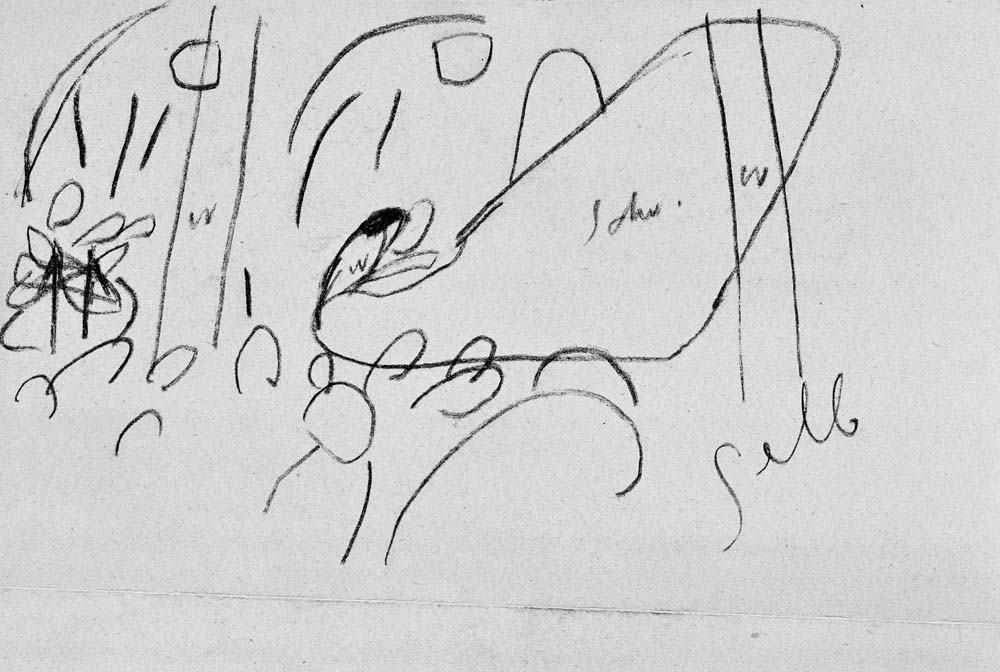 w
w
w
schw.
gelb